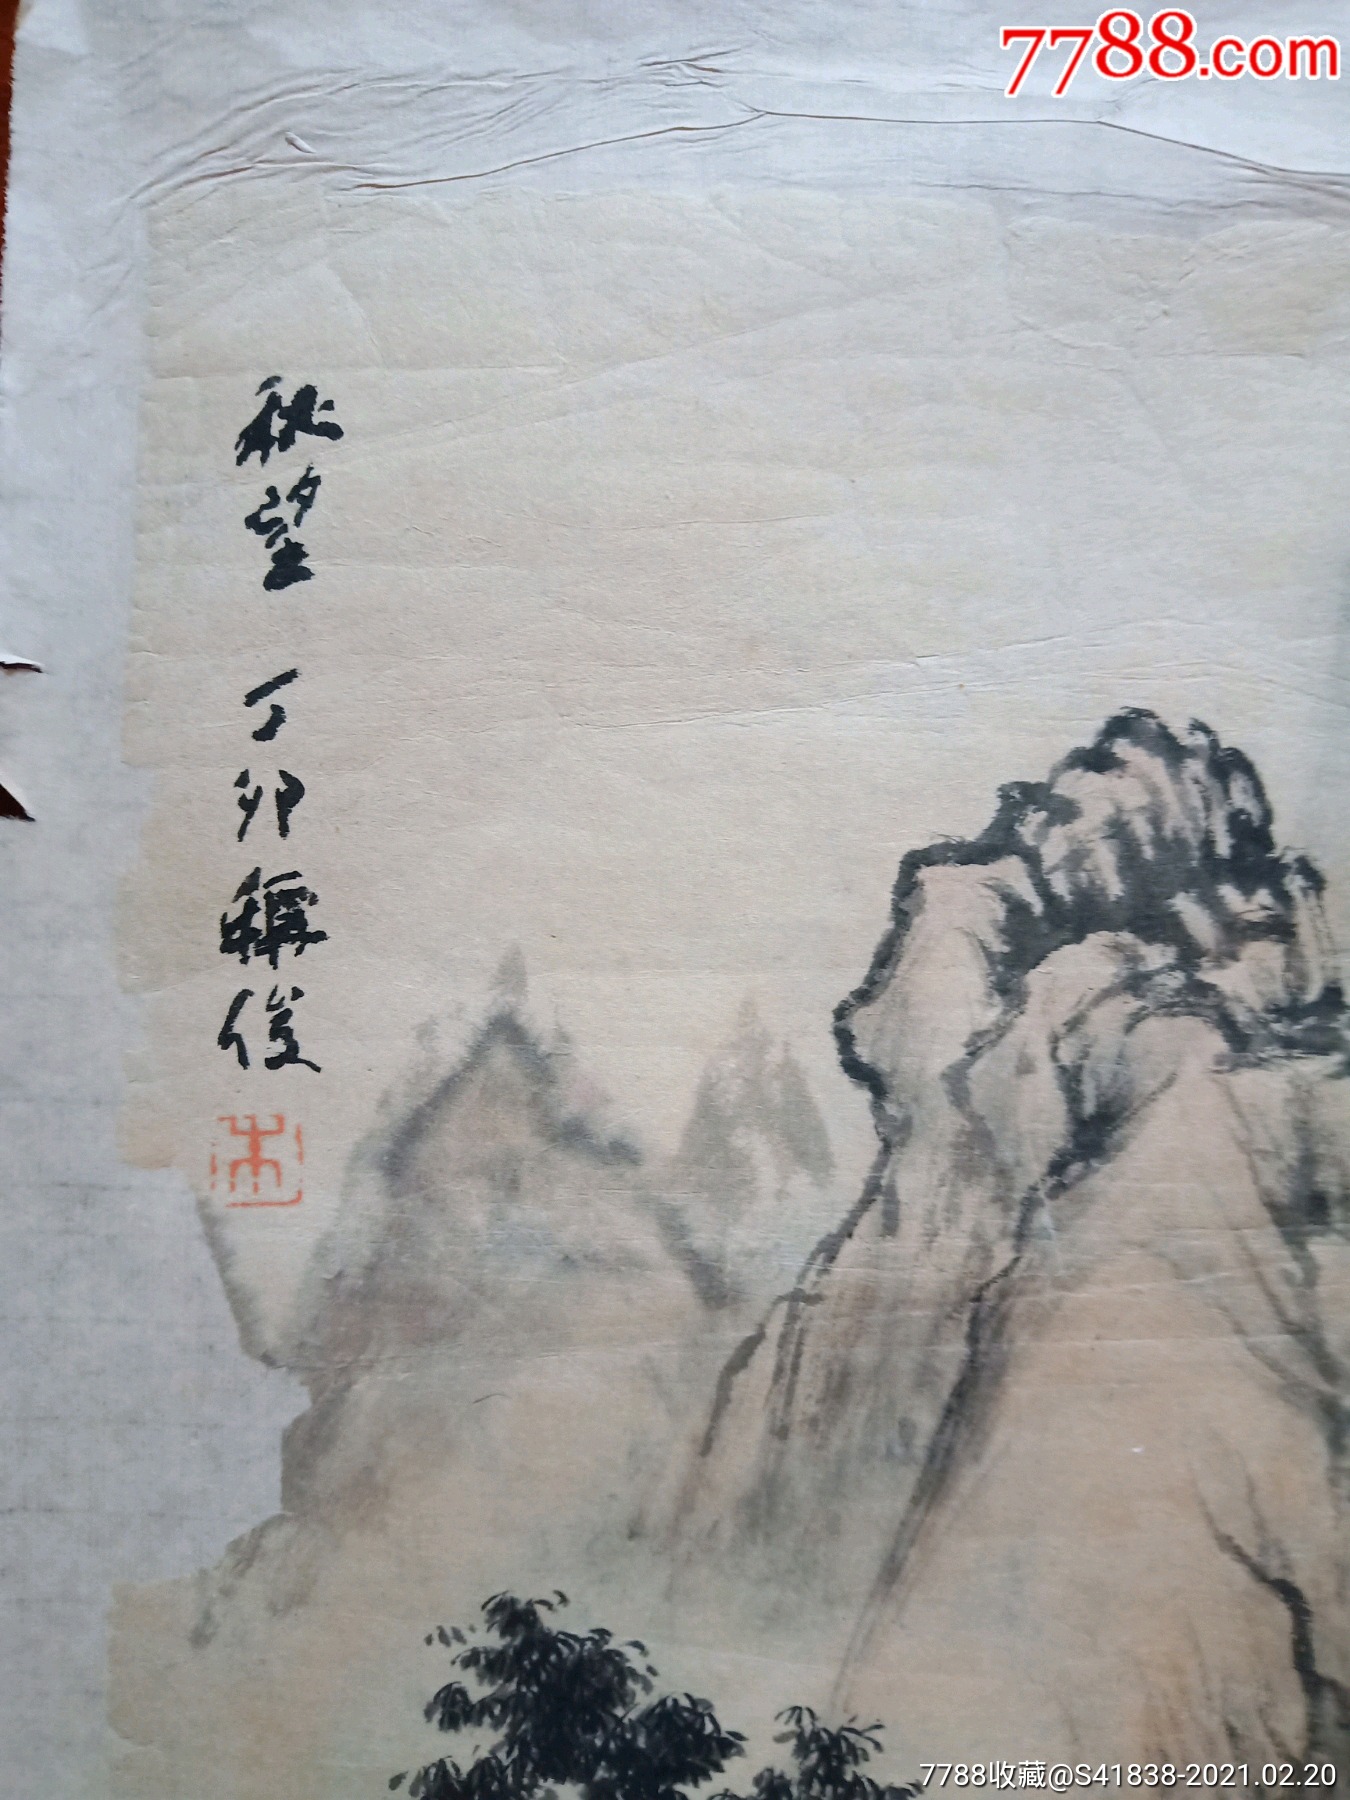 7788.com
秋望 丁卯 稱俊
7788收藏@S41838-2021.02.20